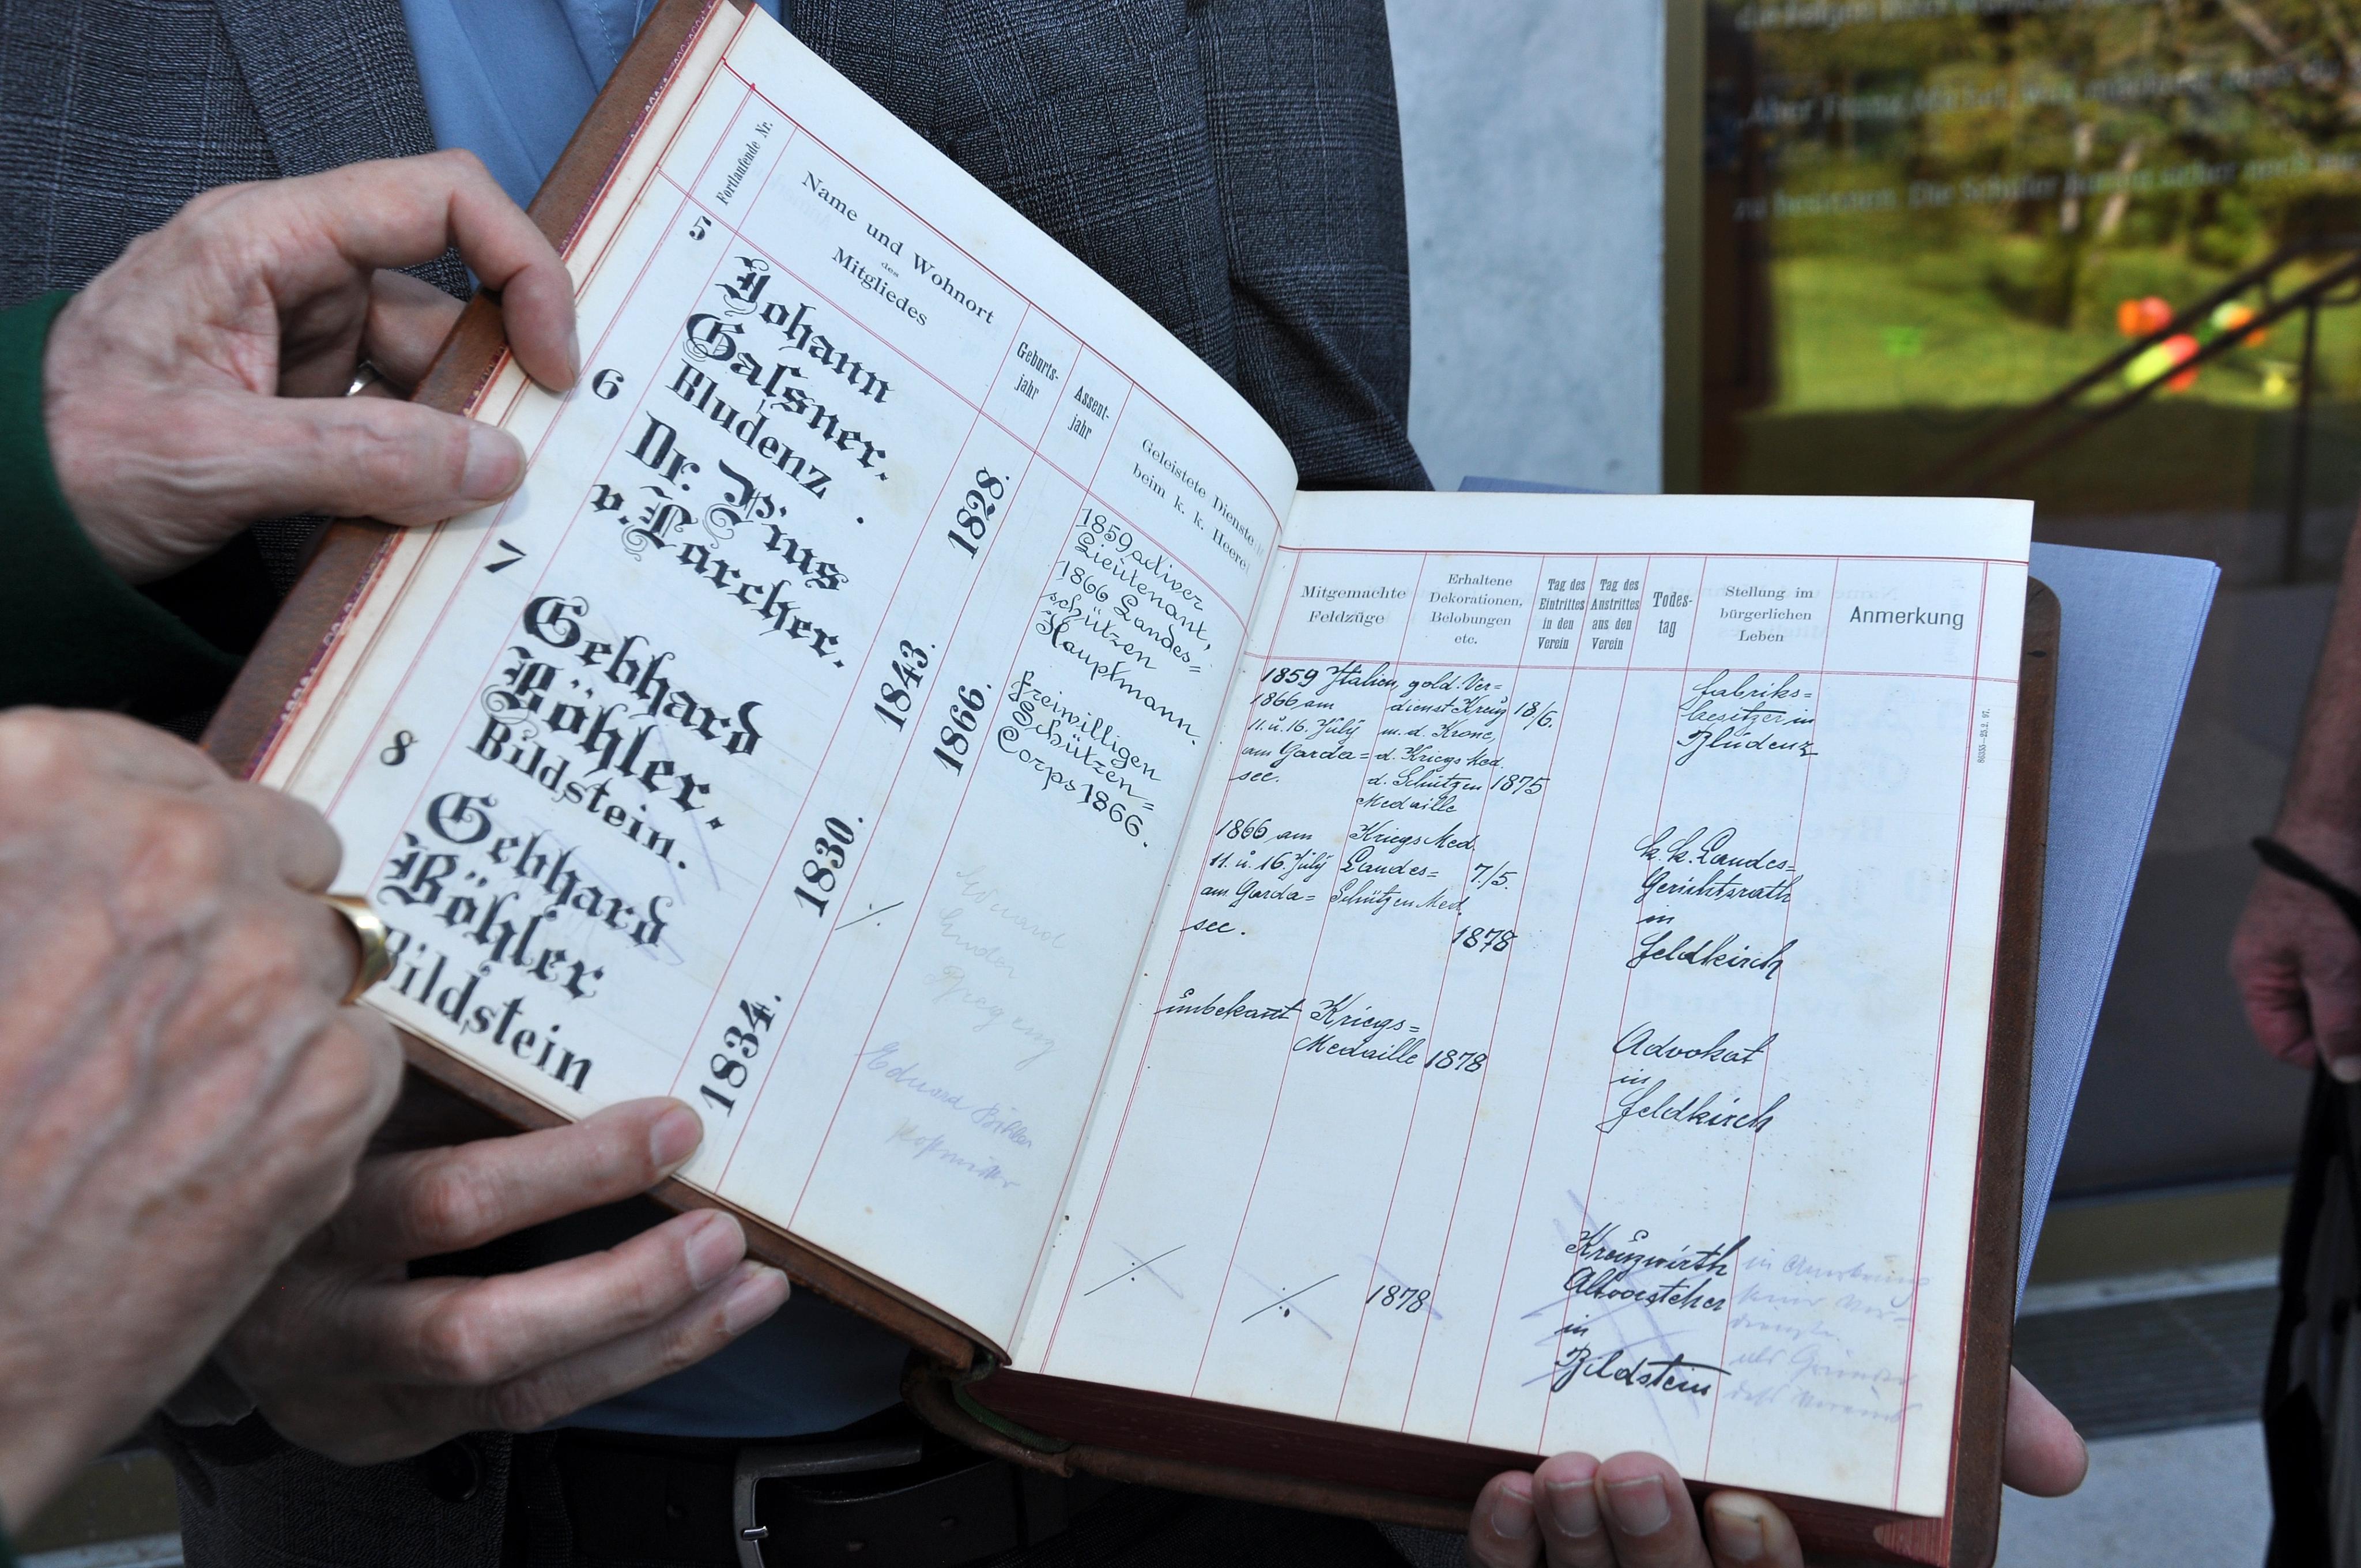 Fortlaufende Nr.
Name und Wohnort
des
Mitgliedes
Geburts-
jahr
Assent-
jahr
Geleistete Dienste
beim k. k. Heere
5
Johann
Galsner.
Bludenz.
1828.
1859 activer
Lieutenant,
1866 Landes=
schützen
Hauptmann.
6
Dr. Pius
v. Larcher.
1843.
1866.
Freiwilligen
Schützen=
Corps 1866.
7
Gebhard
Böhler.
Bildstein.
1830.
8
Gebhard
Böhler
Bildstein
1834.
Mitgemachte
Feldzüge
Erhaltene
Dekorationen,
Belobungen
etc.
Tag des
Eintrittes
in den
Verein
Tag des
Austrittes
aus den
Verein
Todes-
tag
Stellung im
bürgerlichen
Leben
Anmerkung
1859 Italien,
1866 am
11. u. 16. July
am Garda=
see.
gold. Ver=
dienst Kreuz
m. d. Krone,
d. Kriegs Med.
d. Schützen
Medaille
18/6.
1875
Fabriks=
besitzer in
Bludenz
1866 am
11. u. 16. July
am Garda=
see.
Kriegs Med.
Landes=
Schützen Med.
7/5.
1878
k. k. Landes=
Gerichtsrath
in
Feldkirch
unbekant
Kriegs=
Medaille
1878
Advokat
in
Feldkirch
1878
Kreuzwirth
Altvorsteher
in
Bildstein